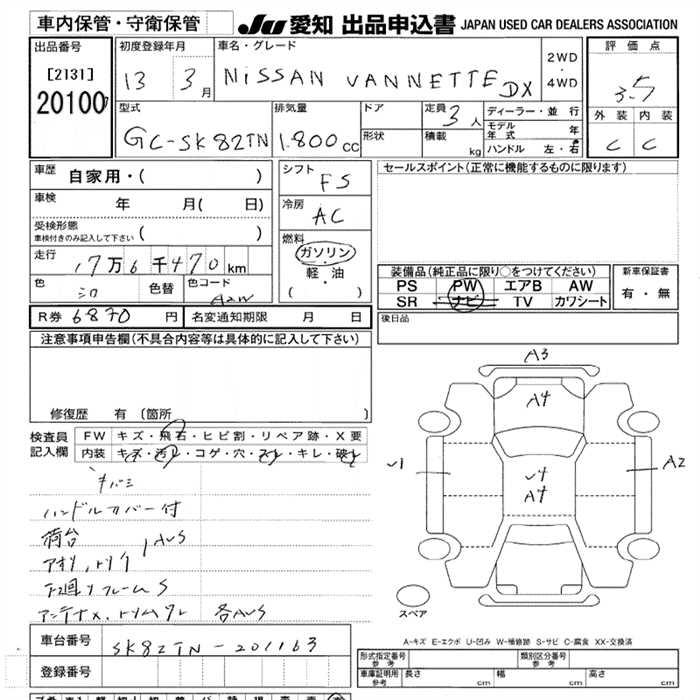 車内保管・守衛保管 JU 愛知 出品申込書 JAPAN USED CAR DEALERS ASSOCIATION
出品番号 初度登録年月 車名・グレード 評価点
[2131] 13 3月 NISSAN VANNETTE DX 2WD・4WD 3.5
20100 外装 内装
型式 排気量 ドア 定員 3人 ディーラー・並行 C C
GC-SK82TN 1.800cc 形状 積載 kg モデル年式 年
ハンドル 左・右
車歴 自家用・( ) シフト FS セールスポイント(正常に機能するものに限ります)
車検 年 月( 日) 冷房 AC
受検形態 車検付きのみ記入して下さい ( )
走行 17万6千470km 燃料 ガソリン・軽油 ( )
装備品(純正品に限り○をつけてください) 新車保証書
色 シロ 色替 色コード PS PW エアB AW 有・無
SR ナビ TV カワシート
R券 6870円 名変通知期限 月 日 後日品
注意事項申告欄(不具合内容等は具体的に記入して下さい)
修復歴 有 (箇所 )
検査員記入欄 FW キズ・飛石・ヒビ割・リペア跡・X要
内装 キズ・汚レ・コゲ・穴・スレ・キレ・破レ
ハンドルカバー付
荷台
アオリ、トリイ AUS
下廻リフレームS
各AUS
A3
A4
U1 U4 A2
A4
スペア
A-キズ E-エクボ U-凹み W-補修跡 S-サビ C-腐食 XX-交換済
車台番号 SK82TN-201163
登録番号
形式指定番号 参考 類別区分番号 参考
車庫証明用 参考 長さ cm 幅 cm 高さ cm